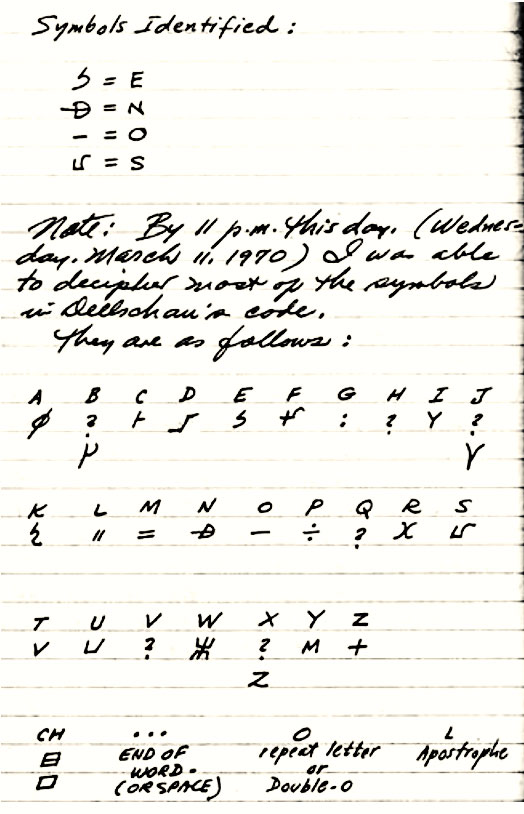 Symbols Identified:
ϟ = E
Ð = N
– = O
ᔕ = S
Note: By 11 p.m. this day. (Wednes=
day. March 11, 1970) I was able
to decipher most of the symbols
in Dellschau's code.
They are as follows:
A B C D E F G H I J
ϕ ? : ? Y ?
γ
K L M N O P Q R S
" = Ð – ÷ ? X
T U V W X Y Z
V ⊔ ? Ж ? M +
Z
CH ... O L
END OF repeat letter Apostrophe
WORD - or
(OR SPACE) Double-O